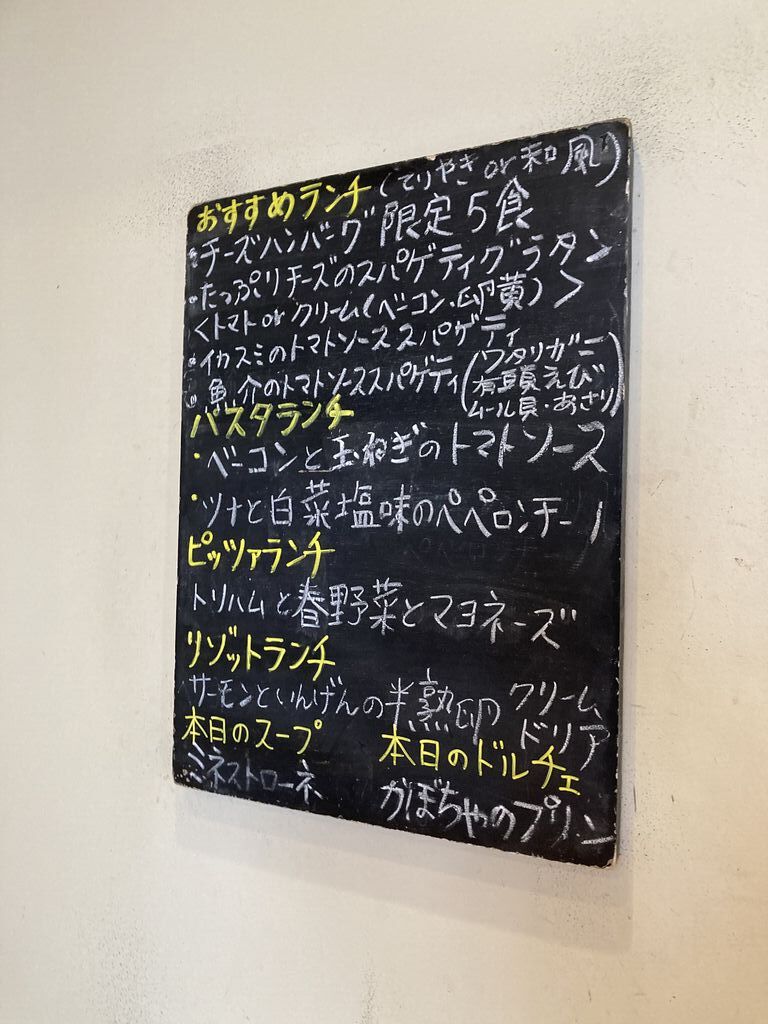 おすすめランチ (てりやき or 和風)
・チーズハンバーグ 限定5食
・たっぷりチーズのスパゲティグラタン
<トマト or クリーム(ベーコン・卵黄)>
・イカスミのトマトソーススパゲティ
・魚介のトマトソーススパゲティ(ワタリガニー
有頭えび
ムール貝・あさり)
パスタランチ
・ベーコンと玉ねぎのトマトソース
・ツナと白菜塩味のペペロンチーノ
ピッツァランチ
トリハムと春野菜とマヨネーズ
リゾットランチ
サーモンといんげんの半熟卵 クリーム
ドリア
本日のスープ 本日のドルチェ
ミネストローネ かぼちゃのプリン